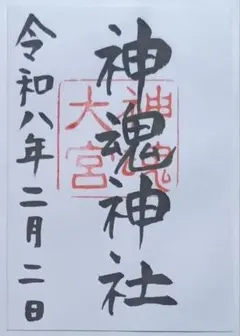 神魂神社
神魂大宮
令和八年二月二日